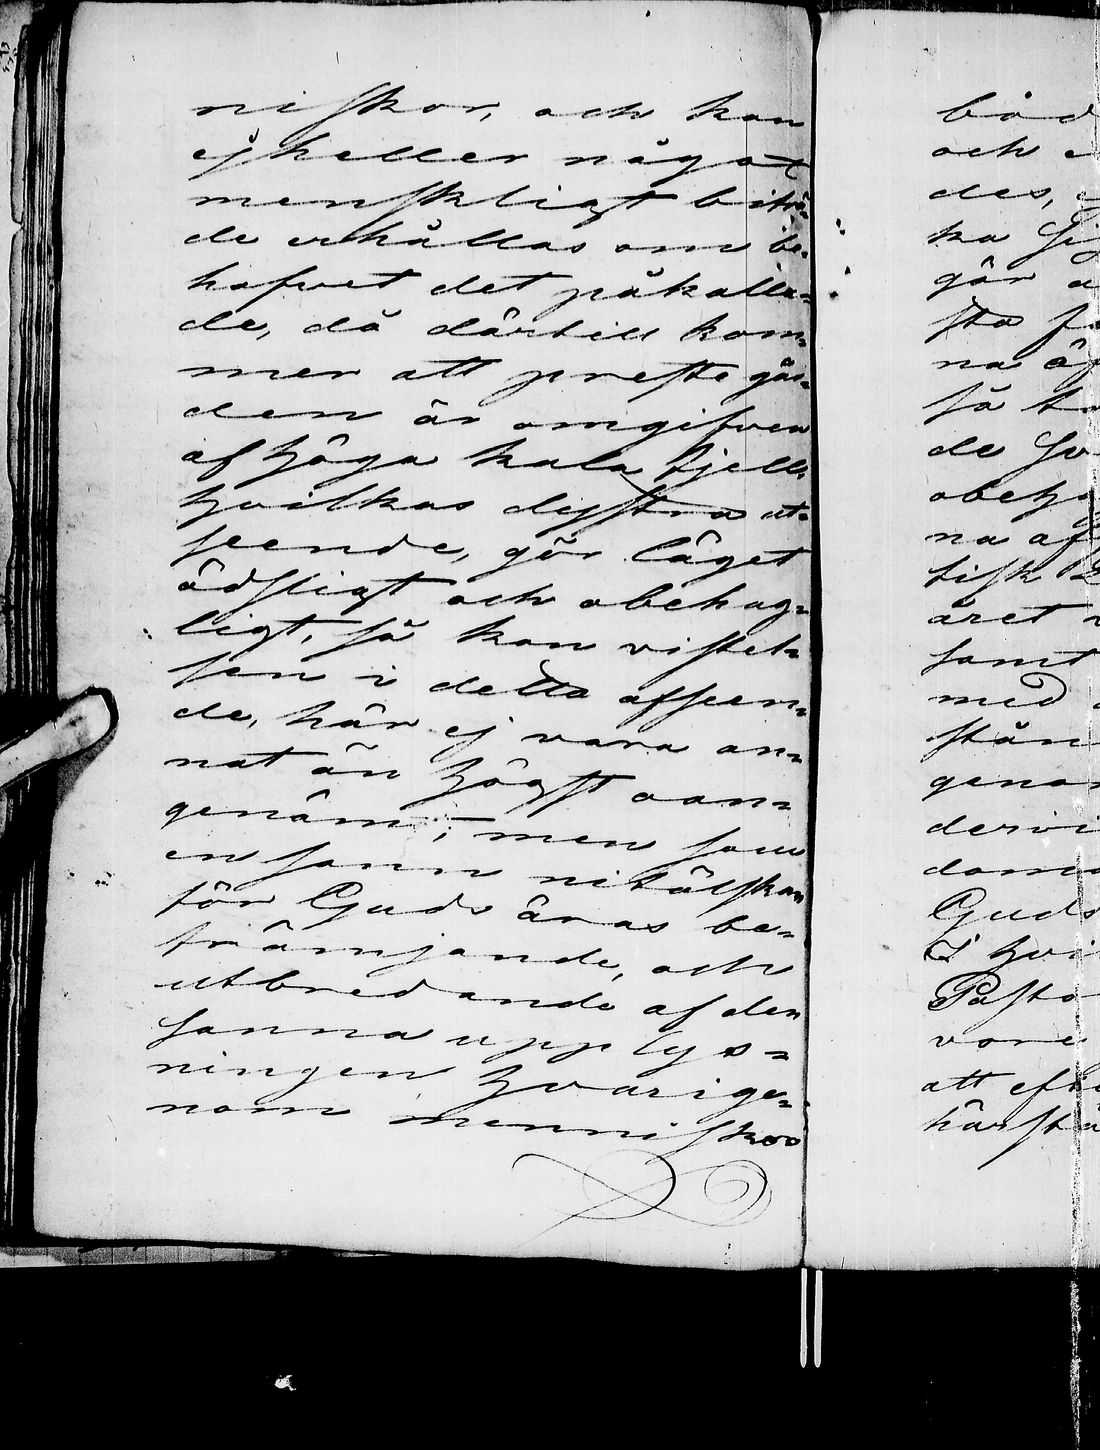 niskor, och kan
ej heller något
menskligt biträ-
de erhållas om be-
hofvet det påkalla-
de, då därtill kom-
mer att preste går-
den är omgifven
af höga kala fjell
hvilkas dystra ut-
seende, gör läget
ödsligt och obehag-
ligt, så kan vistel-
sen i detta afseen-
de, här ej vara an-
nat än högst oan-
genäm; men som
en sann nitälskan
för Guds äras be-
främjande, och
utbredande af den
sanna upplys-
ningen hvarige-
nom menniskor
båd
och
des,
ka
gör
sta
na
så
de
obeha
na af
tisk
året
samt
med
stån
genom
dervi
dom
Guds
I hvi
Pasto
vore
att efte
härstä